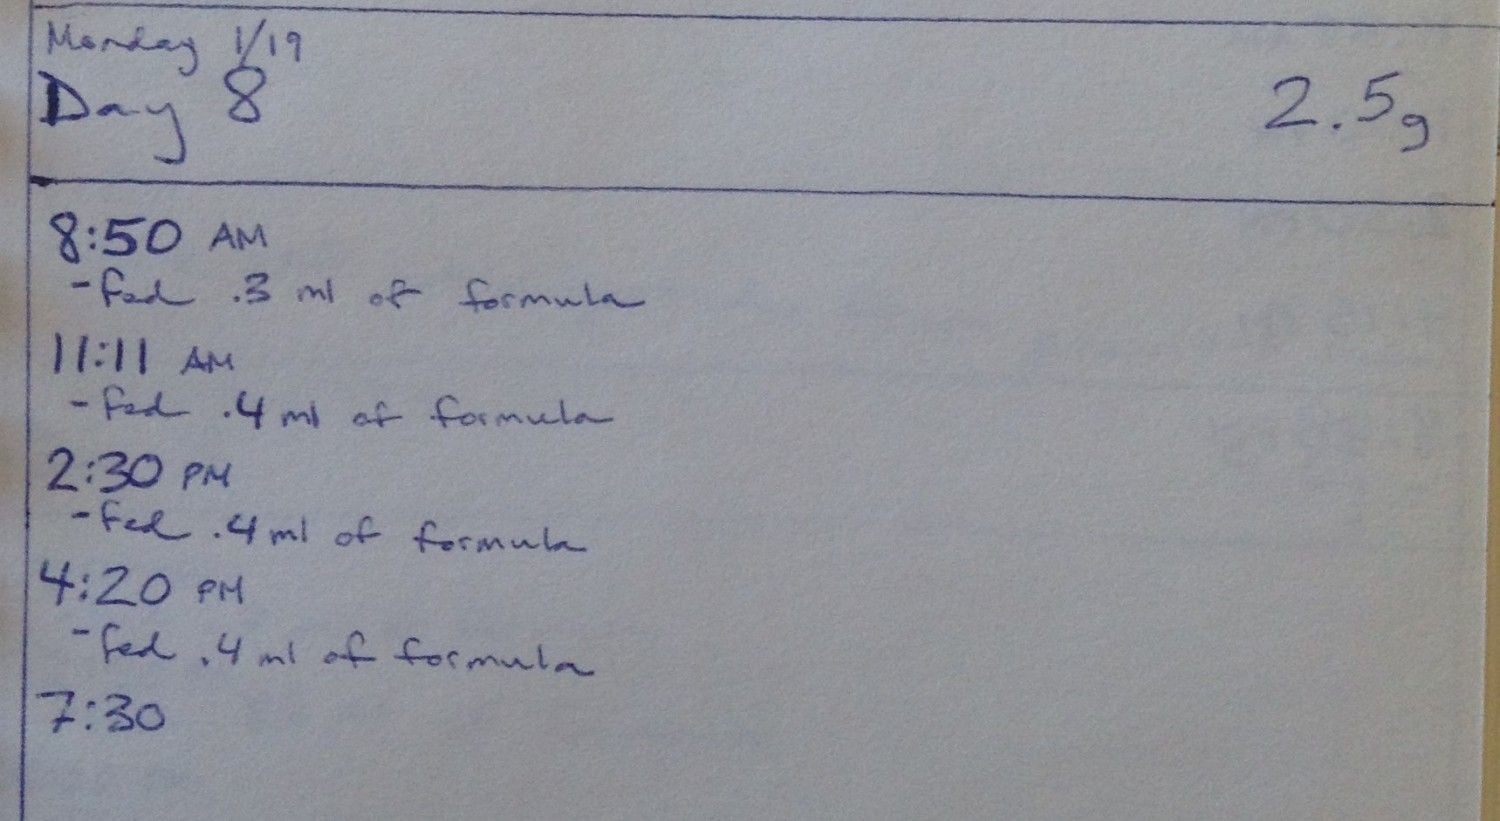 Monday 1/19
Day 8
2.5g
8:50 AM
- fed .3 ml of formula
11:11 AM
- fed .4 ml of formula
2:30 PM
- fed .4 ml of formula
4:20 PM
- fed .4 ml of formula
7:30